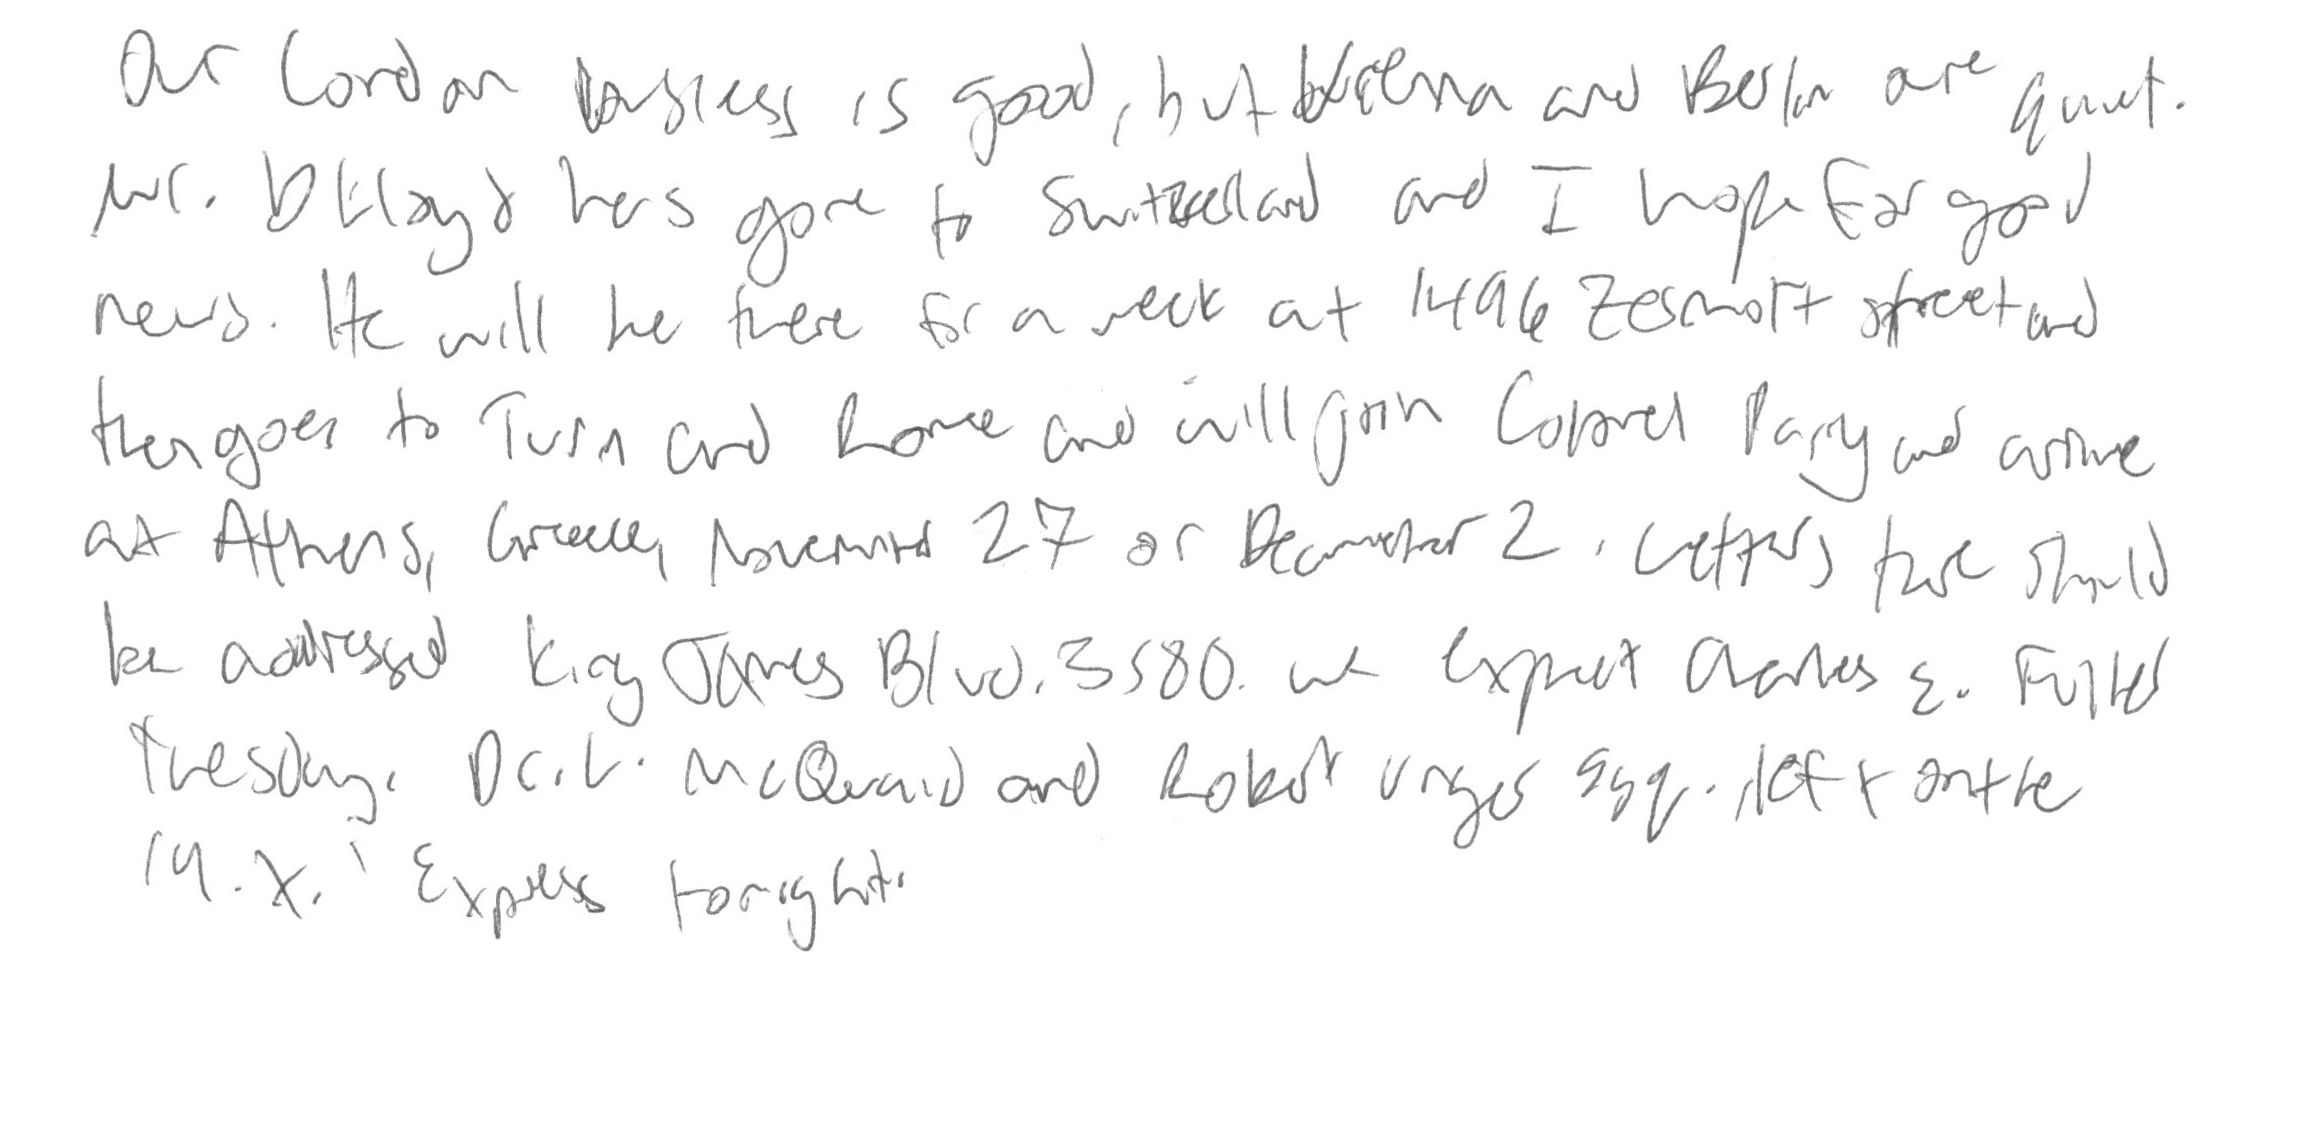 Our London business is good, but Vienna and Berlin are quiet.
Mr. D Lloyd has gone to Switzerland and I hope for good
news. He will be there for a week at 1496 Zermott street and
then goes to Turin and Rome and will join Colonel Parry and arrive
at Athens, Greece, November 27 or December 2. Letters there should
be addressed King James Blvd. 3580. we expect Charles E. Fuller
Tuesday. Dr. L. McQuaid and Robert Unger Esq. left on the
'Y.X.' Express tonight.